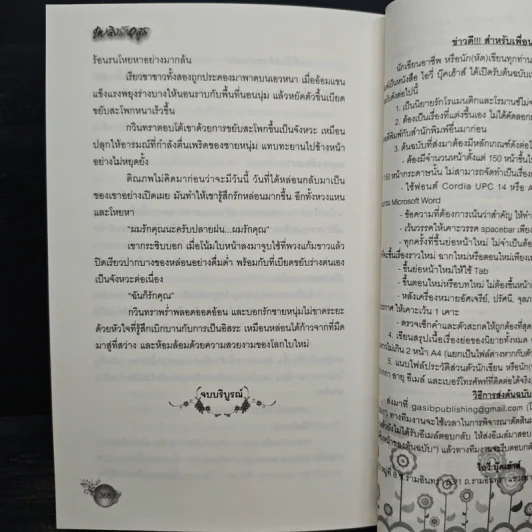 เพลิงรักอสูร
ร้อนรนโหยหาอย่างมากล้น
เรียวขาขาวทั้งสองถูกประคองมาพาดบนเอวหนา เมื่ออ้อมแขน
แข็งแรงพยุงร่างบางให้นอนราบกับพื้นที่นอนนุ่ม แล้วหยัดตัวขึ้นเบียด
ขยับสะโพกหนาเร็วขึ้น
กวินทราตอบโต้เขาด้วยการขยับสะโพกขึ้นเป็นจังหวะ เหมือน
ปลุกให้อารมณ์ที่กำลังตื่นเพริดของชายหนุ่ม แทบทะยานไปข้างหน้า
อย่างไม่หยุดยั้ง
ติณภพไม่คิดมาก่อนว่าจะมีวันนี้ วันที่ได้หล่อนกลับมาเป็น
ของเขาอย่างเปิดเผย มันทำให้เขารู้สึกรักหล่อนมากขึ้น อีกทั้งหวงแหน
และโหยหา
"ผมรักคุณนะครับปลายฝน...ผมรักคุณ"
เขากระซิบบอก เมื่อโน้มใบหน้าลงมาจูบไซ้ที่พวงแก้มขาวแล้ว
ปิดเรียวปากบางของหล่อนอย่างดื่มด่ำ พร้อมกับที่เบียดขยับร่างตนเอง
เป็นจังหวะต่อเนื่อง
"ฉันก็รักคุณ"
กวินทราพร่ำพลอดออดอ้อน และบอกรักชายหนุ่มไม่ขาดระยะ
ด้วยหัวใจที่รู้สึกเบิกบานกับการเป็นอิสระ เหมือนหล่อนได้ก้าวจากที่มืด
มาสู่ที่สว่าง และห้อมล้อมด้วยความสวยงามของโลกใบใหม่
จบบริบูรณ์
368
ข่าวดี!!! สำหรับเพื่อน
นักเขียนอาชีพ หรือนัก(หัด)เขียนทุกท่าน
เป็นหนังสือ ไอวี่ บุ๊คเฮ้าส์ ได้เปิดรับต้นฉบับ
ดังต่อไปนี้
1. เป็นนิยายรักโรแมนติกและโรมานซ์ไม่จำ
2. ต้องเป็นเรื่องที่แต่งขึ้นเอง ไม่ได้คัดลอก
พิมพ์กับสำนักพิมพ์อื่นมาก่อน
3. ต้นฉบับที่ส่งมาต้องมีหลักเกณฑ์ดังต่อไป
- ต้องมีจำนวนหน้าตั้งแต่ 150 หน้าขึ้นไป
150 หน้ากระดาษนั้น ไม่สามารถจัดทำเป็นเรื่อง
- ใช้ฟอนต์ Cordia UPC 14 หรือ A
Microsoft Word
- ข้อความที่ต้องการเน้นว่าสำคัญ ให้ทำ
- เว้นวรรคให้เคาะวรรค spacebar เพียง
- ทุกครั้งที่ขึ้นย่อหน้าใหม่ ไม่จำเป็นต้อง
ขึ้นเรื่องราวใหม่ ฉากใหม่หรือตอนใหม่เพียง
- ขึ้นย่อหน้าใหม่ให้ใช้ Tab
- ขึ้นตอนใหม่หรือบทใหม่ ไม่ต้องขึ้นหน้า
- หลังเครื่องหมายอัศเจรีย์, ปรัศนี, จุลภาค
ให้เคาะเว้น 1 เคาะ
- ตรวจเช็กคำและตัวสะกดให้ถูกต้องที่สุด
4. เขียนสรุปเนื้อเรื่องย่อของนิยายทั้งหมด
ไม่เกิน 2 หน้า A4 (แยกเป็นไฟล์ต่างหากกับตัว
5. แนบไฟล์ประวัติส่วนตัวนักเขียน หรือนัก
อายุ อีเมล์ และเบอร์โทรศัพท์ที่ติดต่อได้จริง
วิธีการส่งต้นฉบับ
ส่งมาที่ gasibpublishing@gmail.com
ทางทีมงานจะใช้เวลาในการพิจารณาตัดสิน
ไม่ได้รับอีเมล์ตอบกลับ ให้ส่งอีเมล์มาสอบ
แล้วทางทีมงานจะรีบตอบ
ไอวี่ บุ๊คเฮ้าส์